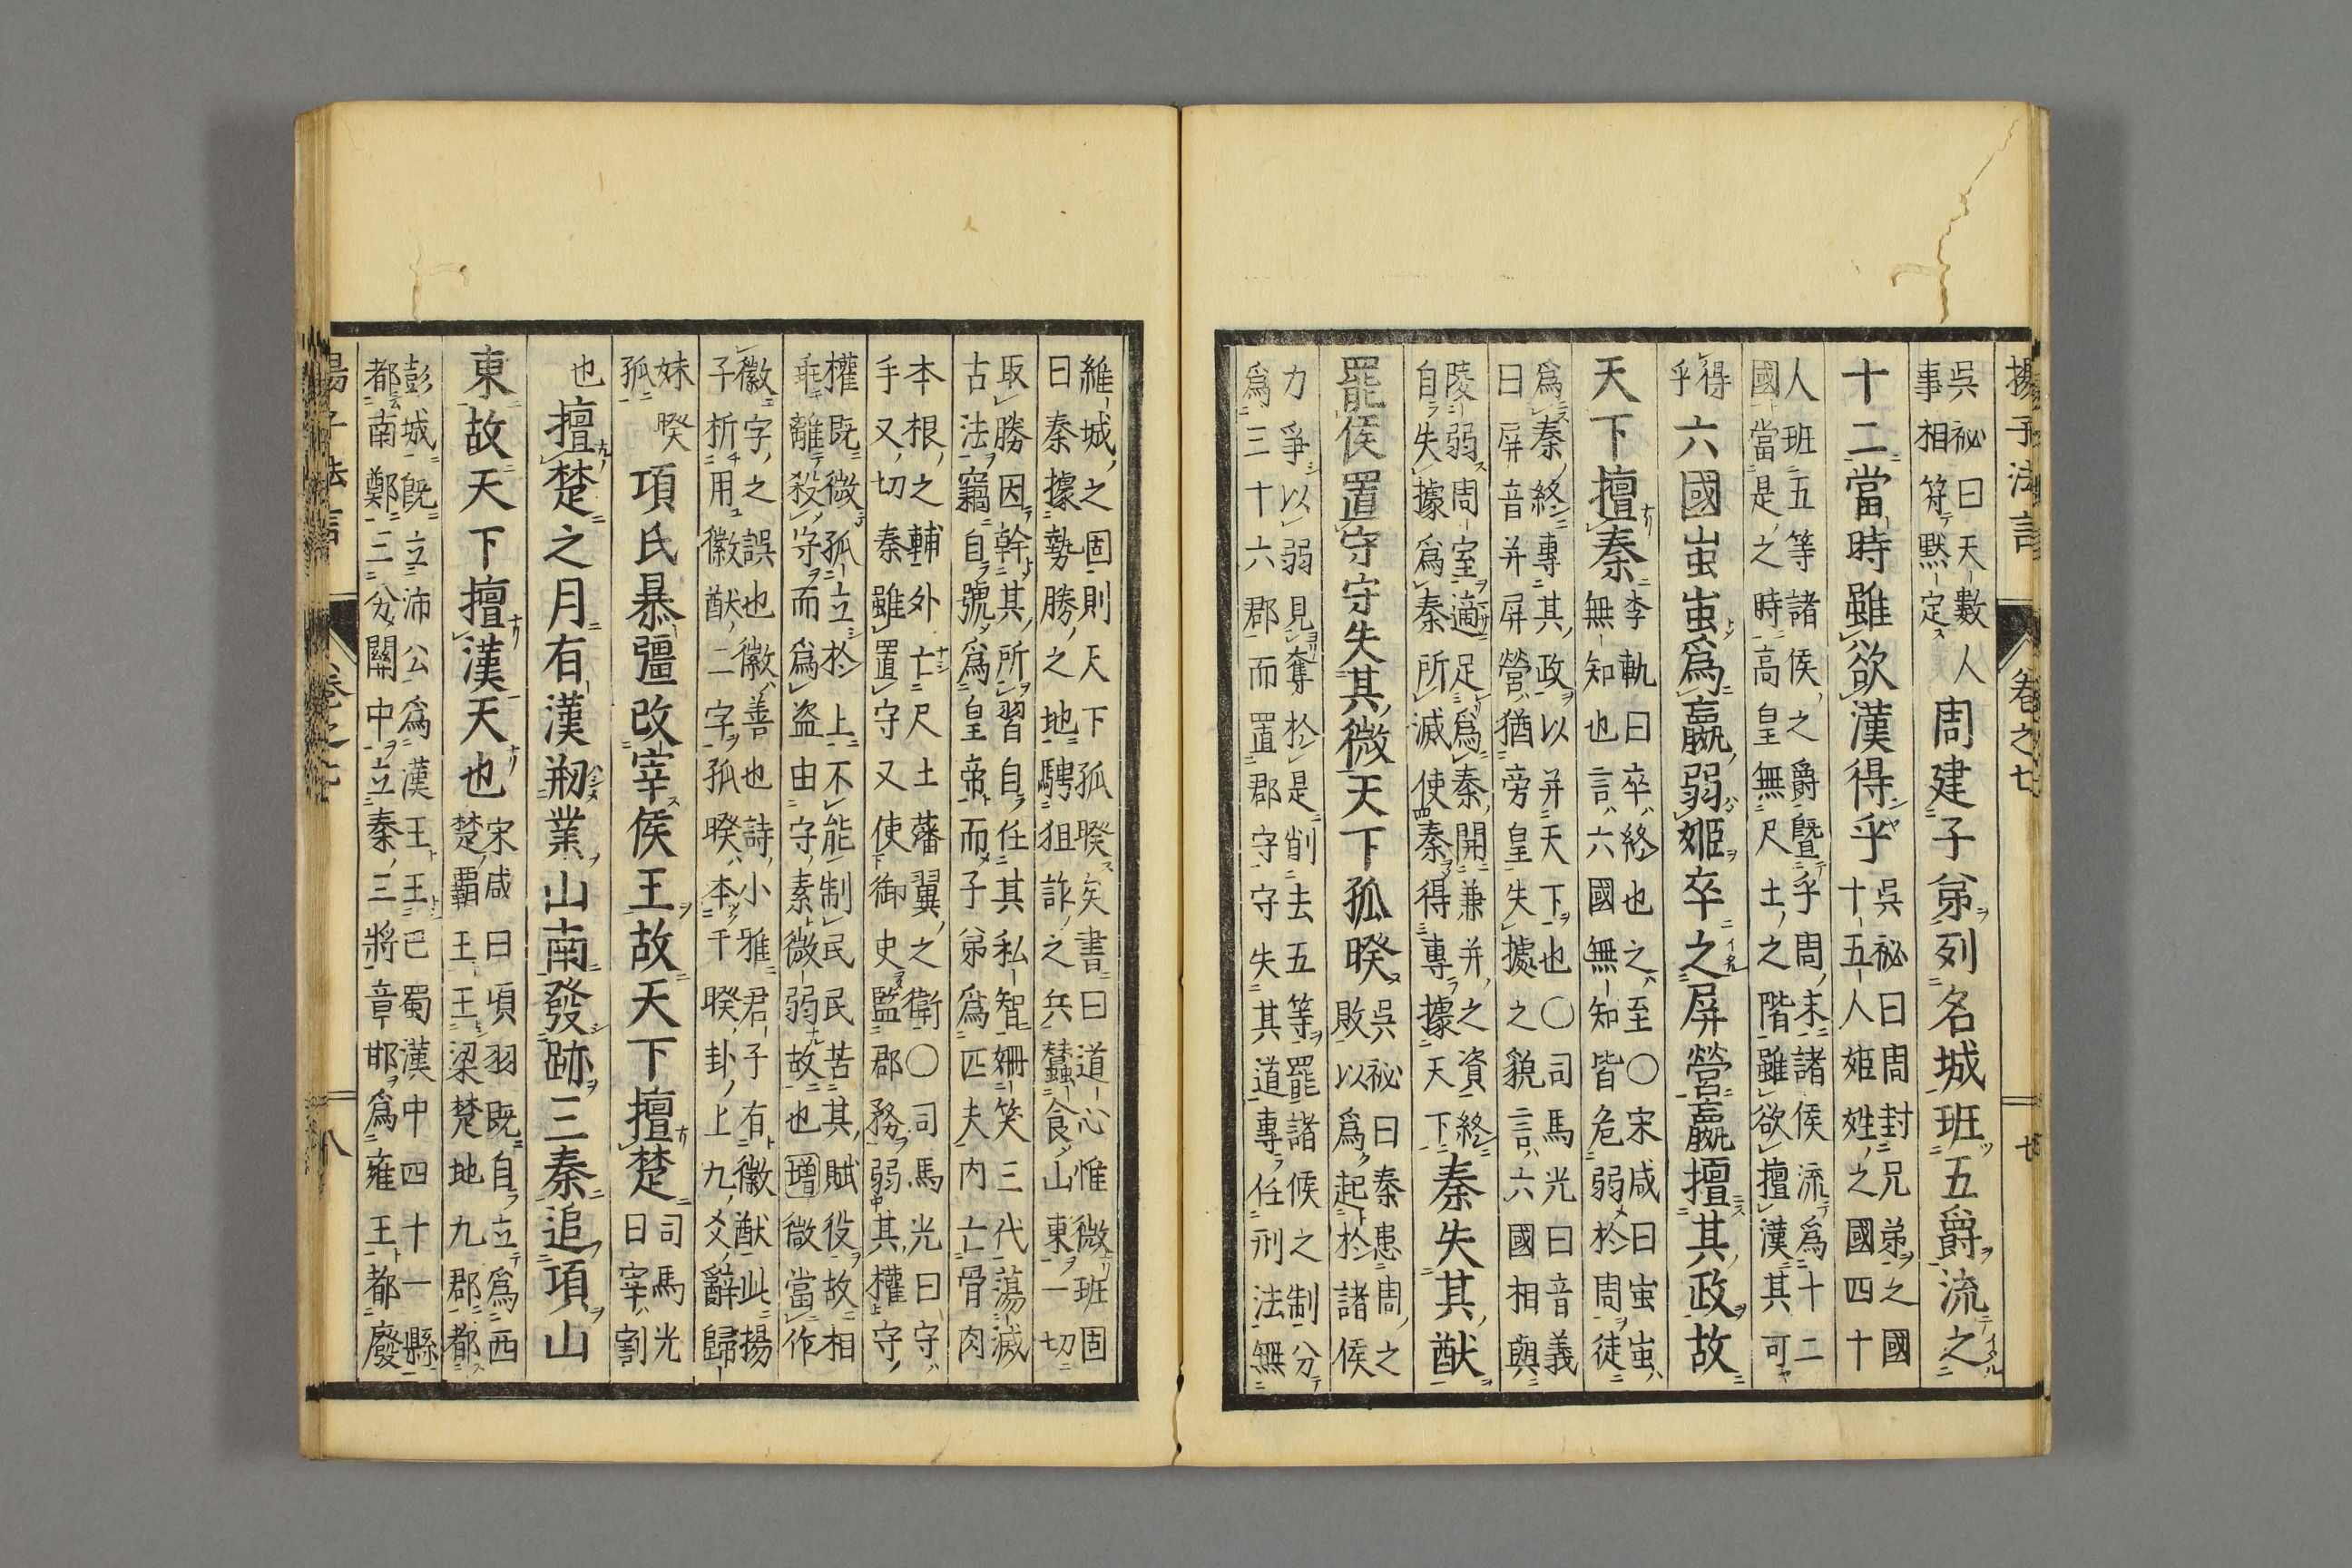 揚子法言 卷之七 七
吳祕曰天數人
事相符默定
周建子弟列名城班五爵流之
十二當時雖欲漢得乎
吳祕曰周封兄弟之國
十五人姬姓之國四十
人班五等諸侯之爵曁乎周末諸侯流爲十二
國當是之時高皇無尺土之階雖欲擅漢其可
得
乎
六國蚩蚩爲嬴弱姬卒之屏營嬴擅其政故
天下擅秦
李軌曰卒終也之至〇宋咸曰蚩蚩
無知也言六國無知皆危弱於周徒
爲秦終專其政以并天下也〇司馬光曰音義
曰屏音并屏營猶旁皇失據之貌言六國相與
陵弱周室適足爲秦開兼并之資終
自失據爲秦所滅使秦得專據天下
秦失其猷
罷侯置守守失其微天下孤睽
吳祕曰秦患周之
敗以爲起於諸侯
力爭以弱見奪於是削去五等罷諸候之制分
爲三十六郡而置郡守守失其道專任刑法無
維城之固則天下孤睽矣書曰道心惟微班固
曰秦據勢勝之地騁狙詐之兵蠶食山東一切
取勝因幹其所習自任其私智姍笑三代蕩滅
古法竊自號爲皇帝而子弟爲匹夫内亡骨肉
本根之輔外亡尺土藩翼之衛〇司馬光曰守
手又切秦雖置守又使御史監郡務弱其權守
權既微孤立於上不能制民民苦其賦役故相
乖離殺守而爲盗由守素微弱故也增微當作
徽字之誤也徽善也詩小雅君子有徽猷此揚
子析用徽猷二字孤睽本于睽卦上九爻辭歸
妹睽
孤
項氏暴彊改宰侯王故天下擅楚
司馬光
曰宰割
也
擅楚之月有漢剏業山南發跡三秦追項山
東故天下擅漢天也
宋咸曰項羽既自立爲西
楚覇王王梁楚地九郡都
彭城既立沛公爲漢王王巴蜀漢中四十一縣
都南鄭三分關中立秦三將章邯爲雍王都廢
揚子法言 卷之七 八